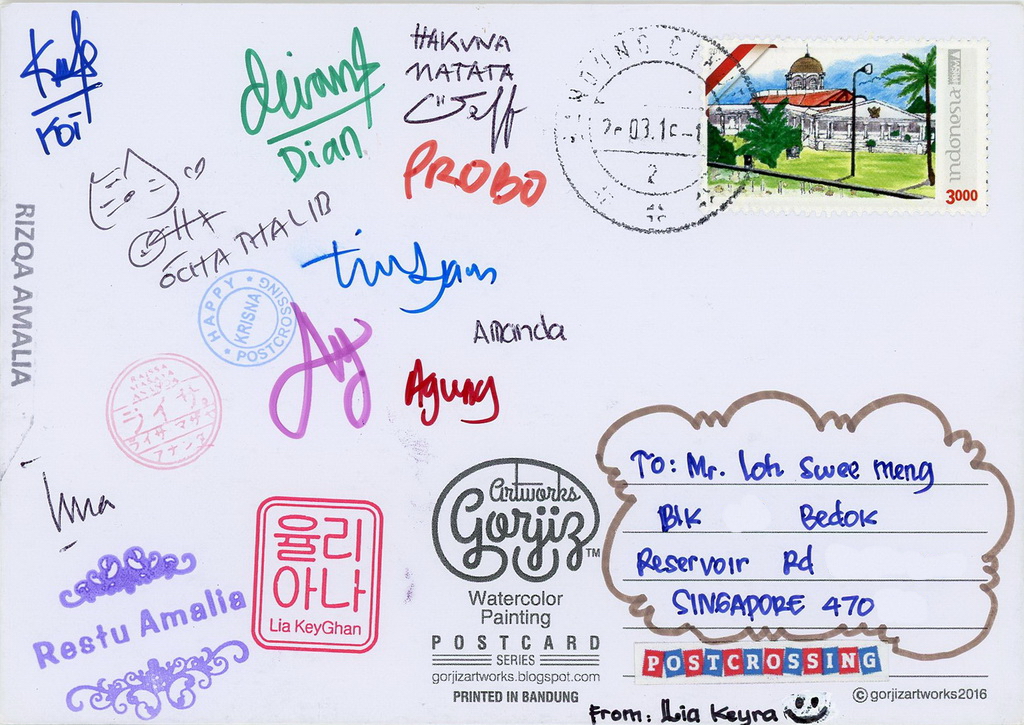 KOI
Dian
HAKUNA
MATATA
Jeff
PROBO
OCHA THALIB
RIZQA AMALIA
HAPPY POSTCROSSING
KRISNA
Amanda
Agung
03.16
2
indonesia
3000
율리
아나
Lia KeyGhan
Restu Amalia
Artworks
Gorjiz™
Watercolor
Painting
POSTCARD
SERIES
gorjizartworks.blogspot.com
PRINTED IN BANDUNG
To: Mr. Loh Swee Meng
Blk Bedok
Reservoir Rd
SINGAPORE 470
POSTCROSSING
©gorjizartworks2016
From: Lia Keyra